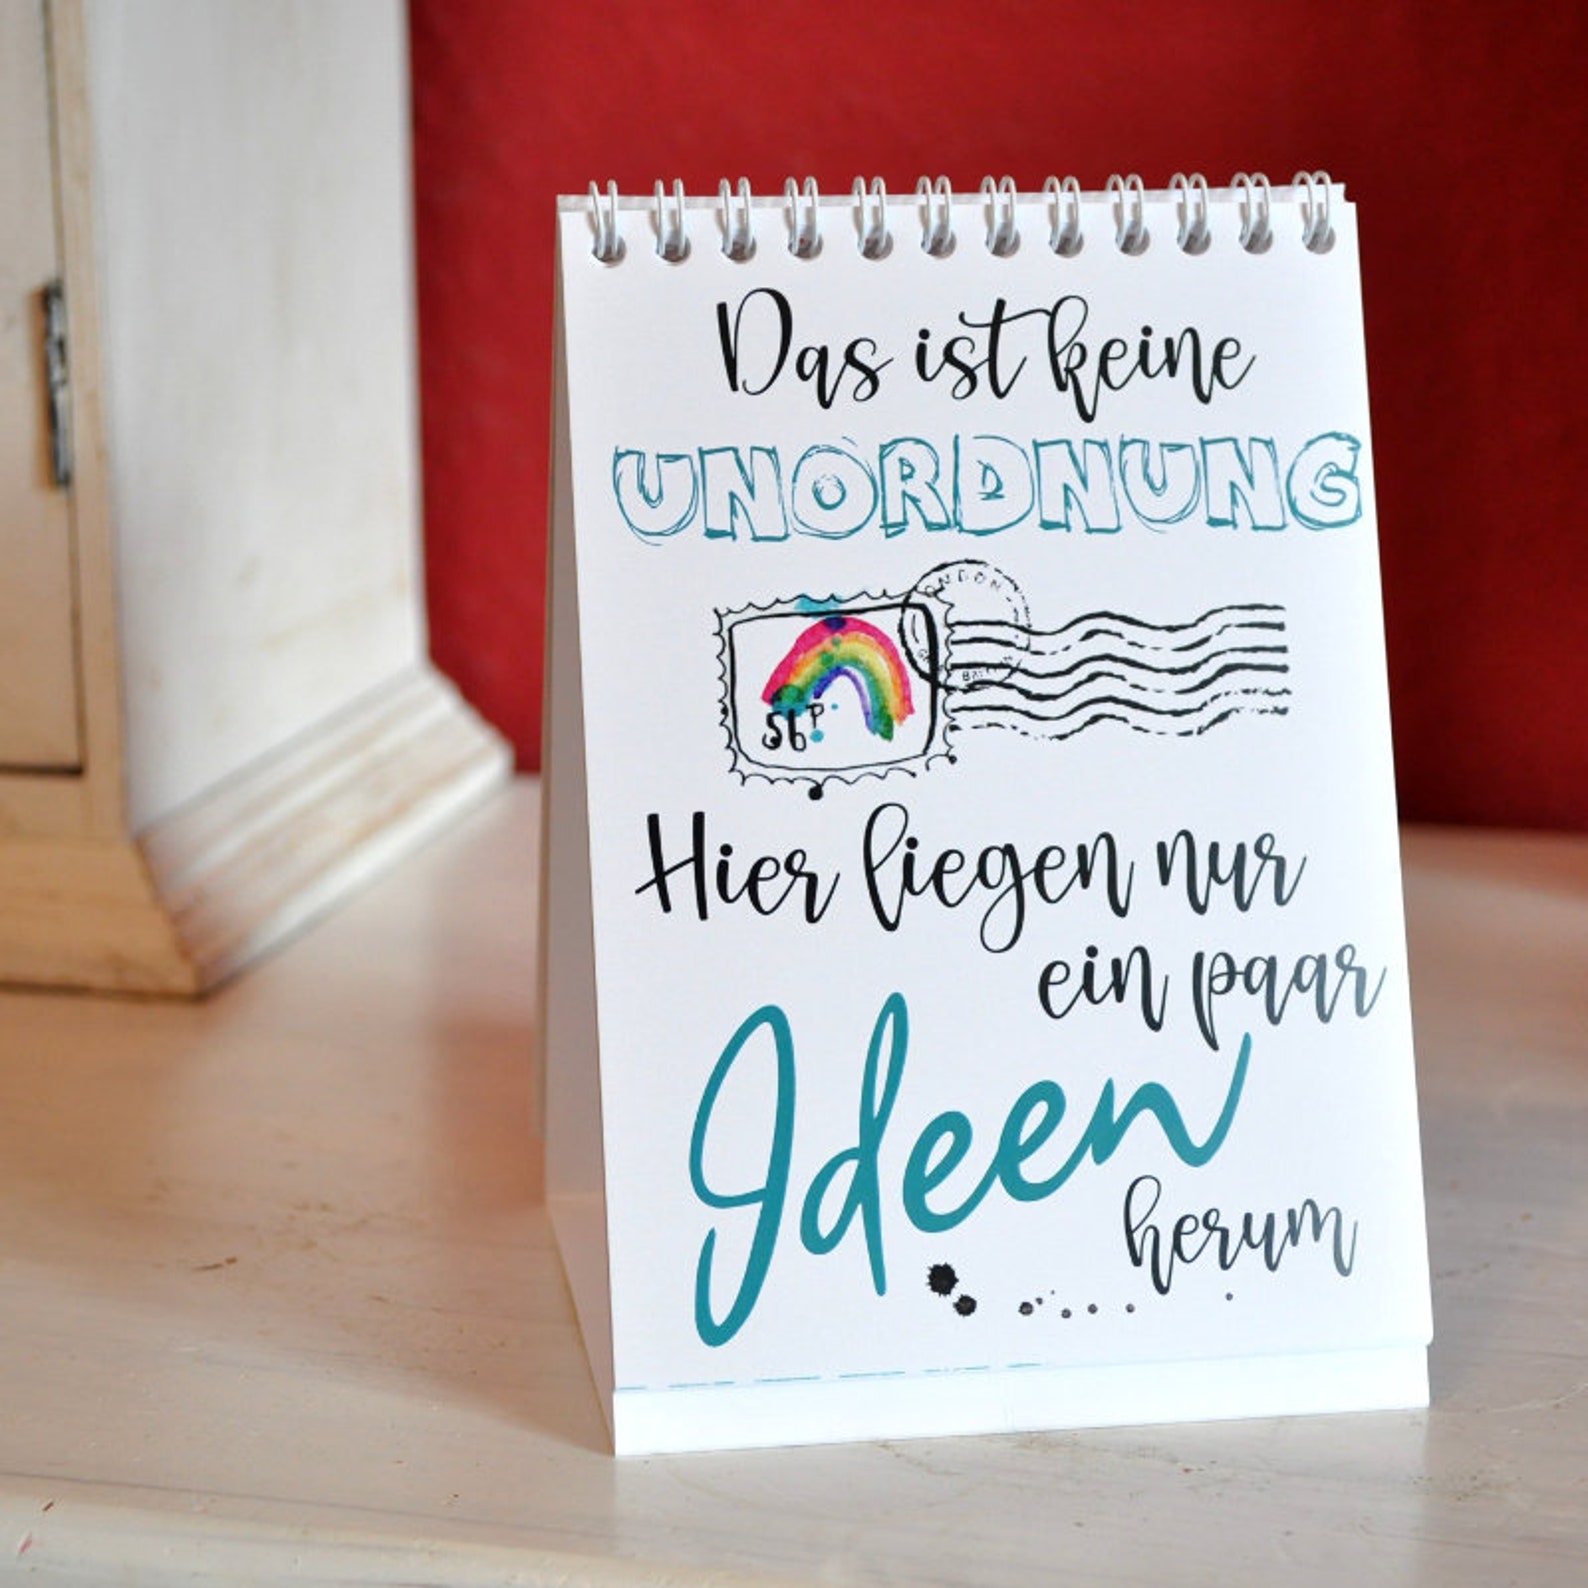 Das ist keine
UNORDNUNG
56P
Hier liegen nur
ein paar
Ideen
herum